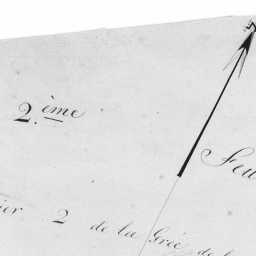 2.ème
Feu
ier 2 de la Gric de l